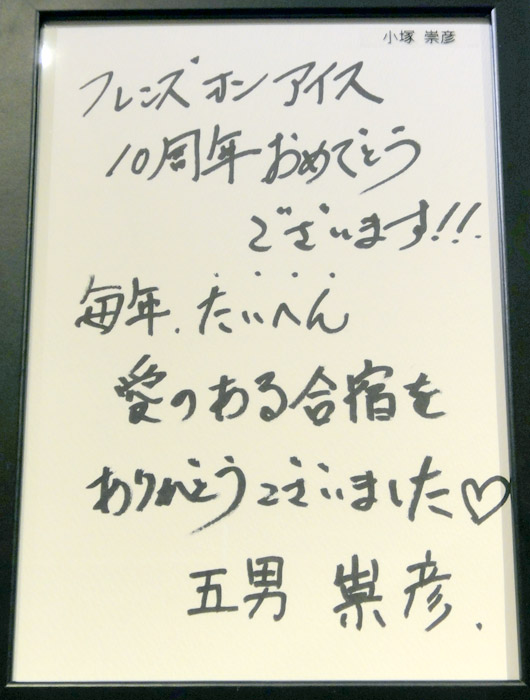 小塚 崇彦
フレンズオンアイス
10周年おめでとう
ございます!!
毎年、たいへん
愛のある合宿を
ありがとうございました♡
五男 崇彦.